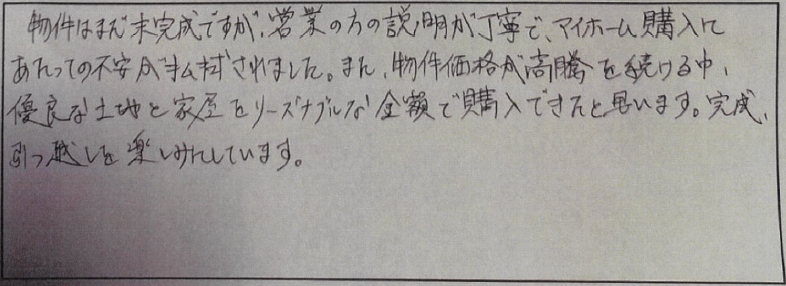 物件はまだ未完成ですが、営業の方の説明が丁寧で、マイホーム購入に
あたっての不安が払拭されました。また、物件価格が高騰を続ける中、
優良な土地と家屋をリーズナブルな金額で購入できたと思います。完成、
引っ越しを楽しみにしています。